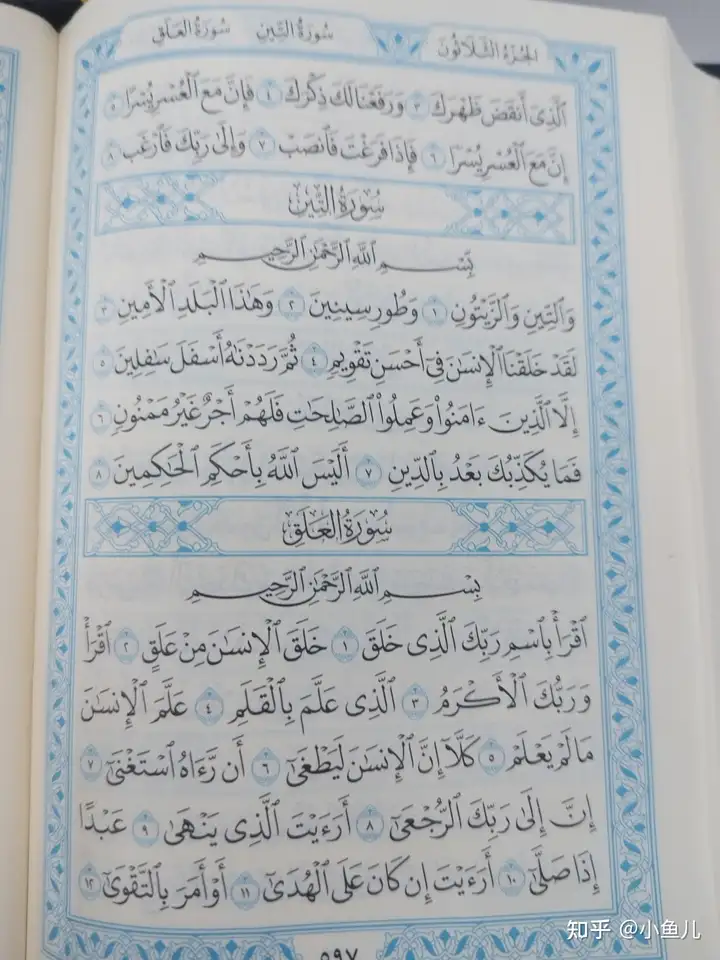 الجزء الثلاثون سورة التين سورة العلق
ٱلَّذِىٓ أَنقَضَ ظَهْرَكَ ٣ وَرَفَعْنَا لَكَ ذِكْرَكَ ٤ فَإِنَّ مَعَ ٱلْعُسْرِ يُسْرًا ٥
إِنَّ مَعَ ٱلْعُسْرِ يُسْرًا ٦ فَإِذَا فَرَغْتَ فَٱنصَبْ ٧ وَإِلَىٰ رَبِّكَ فَٱرْغَب ٨
سُورَةُ التِّينِ
بِسْمِ ٱللَّهِ ٱلرَّحْمَٰنِ ٱلرَّحِيمِ
وَٱلتِّينِ وَٱلزَّيْتُونِ ١ وَطُورِ سِينِينَ ٢ وَهَٰذَا ٱلْبَلَدِ ٱلْأَمِينِ ٣
لَقَدْ خَلَقْنَا ٱلْإِنسَٰنَ فِىٓ أَحْسَنِ تَقْوِيمٍ ٤ ثُمَّ رَدَدْنَٰهُ أَسْفَلَ سَٰفِلِينَ ٥
إِلَّا ٱلَّذِينَ ءَامَنُوا۟ وَعَمِلُوا۟ ٱلصَّٰلِحَٰتِ فَلَهُمْ أَجْرٌ غَيْرُ مَمْنُونٍ ٦
فَمَا يُكَذِّبُكَ بَعْدُ بِٱلدِّينِ ٧ أَلَيْسَ ٱللَّهُ بِأَحْكَمِ ٱلْحَٰكِمِينَ ٨
سُورَةُ العَلَقِ
بِسْمِ ٱللَّهِ ٱلرَّحْمَٰنِ ٱلرَّحِيمِ
ٱقْرَأْ بِٱسْمِ رَبِّكَ ٱلَّذِى خَلَقَ ١ خَلَقَ ٱلْإِنسَٰنَ مِنْ عَلَقٍ ٢ ٱقْرَأْ
وَرَبُّكَ ٱلْأَكْرَمُ ٣ ٱلَّذِى عَلَّمَ بِٱلْقَلَمِ ٤ عَلَّمَ ٱلْإِنسَٰنَ
مَا لَمْ يَعْلَمْ ٥ كَلَّآ إِنَّ ٱلْإِنسَٰنَ لَيَطْغَىٰٓ ٦ أَن رَّءَاهُ ٱسْتَغْنَىٰٓ ٧
إِنَّ إِلَىٰ رَبِّكَ ٱلرُّجْعَىٰٓ ٨ أَرَءَيْتَ ٱلَّذِى يَنْهَىٰ ٩ عَبْدًا
إِذَا صَلَّىٰٓ ١٠ أَرَءَيْتَ إِن كَانَ عَلَى ٱلْهُدَىٰٓ ١١ أَوْ أَمَرَ بِٱلتَّقْوَىٰٓ ١٢
٥٩٧
知乎 @小鱼儿